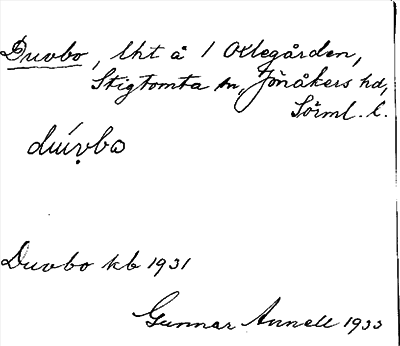 Duvbo, lht å 1 Ottegården,
Stigtomta sn, Jönåkers hd,
Sörml. l.
dúvbo
Duvbo kb 1931
Gunnar Annell 1933